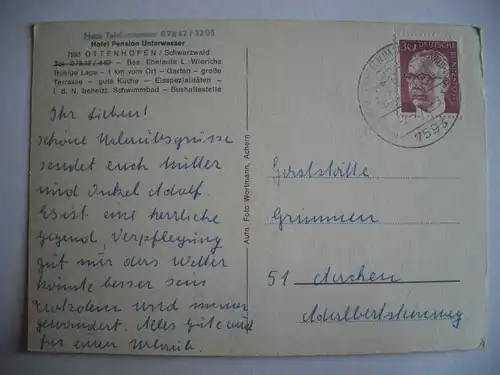 Neue Telefonnummer 07842/3203
Hotel Pension Unterwasser
7593 OTTENHÖFEN/Schwarzwald
Tel. 07842/449 - Bes. Eheleute L. Wierichs
Ruhige Lage - 1 km vom Ort - Garten - große
Terrasse - gute Küche - Eisspezialitäten -
i. d. N. beheizt. Schwimmbad - Bushaltestelle
Ihr Lieben!
Schöne Urlaubsgrüsse
sendet euch Mutter
und Onkel Adolf.
Es ist eine herrliche
Gegend, Verpflegung
gut nur das Wetter
könnte besser sein
trotzdem wird immer
gewandert. Alles Gute und
für einen Urlaub.
Aufn. Foto Wortmann, Achern
30
DEUTSCHE
BUNDESPOST
7593
Gaststätte
Grimmen
51 Aachen
Adalbertsteinweg